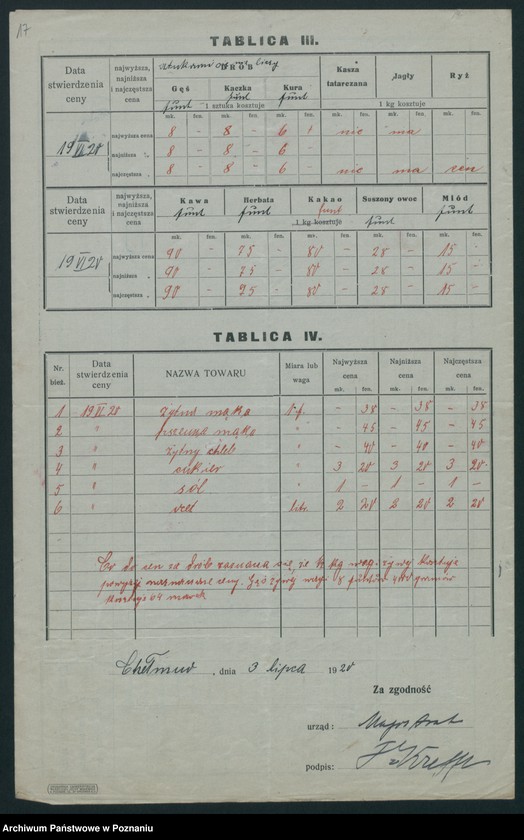 17
TABLICA III.
Data stwierdzenia ceny
najwyższa, najniższa i najczęstsza cena
DRÓB
Kasza tatarczana
Jagły
Ryż
Gęś
Kaczka
Kura
funt
funt
funt
1 sztuka kosztuje
1 kg kosztuje
mk. fen. mk. fen. mk. fen. mk. fen. mk. fen. mk. fen.
19 VI 20
najwyższa cena 8 – 8 – 6 nie ma
najniższa „ 8 – 8 – 6 –
najczęstsza „ 8 – 8 – 6 – nie ma cen
Data stwierdzenia ceny
najwyższa, najniższa i najczęstsza cena
Kawa
Herbata
Kakao
Suszony owoc
Miód
funt
funt
funt
funt
funt
1 kg kosztuje
mk. fen. mk. fen. mk. fen. mk. fen. mk. fen.
19 VI 20
najwyższa cena 90 – 75 – 80 – 28 – 15 –
najniższa „ 90 – 75 – 80 – 28 – 15 –
najczęstsza „ 90 – 75 – 80 – 28 – 15 –
TABLICA IV.
Nr. bież.
Data stwierdzenia ceny
NAZWA TOWARU
Miara lub waga
Najwyższa cena
Najniższa cena
Najczęstsza cena
mk. fen. mk. fen. mk. fen.
1 19 VI 20 żytnia mąka – 38 – 38 – 38
2 " pszenna mąka " – 45 – 45 – 45
3 " żytny chleb " – 40 – 40 – 40
4 " cukier " 3 20 3 20 3 20
5 " sól " 1 – 1 – 1 –
6 " litr. 2 20 2 20 2 20
Co do cen za drób zaznacza się, że kg wagi żywej kosztuje
powyżej naznaczone ceny. Gęś żywej wagi 8 funtów
kosztuje 64 marek
, dnia 3 lipca 1920
Za zgodność
urząd: Magistrat
podpis:
Archiwum Państwowe w Poznaniu